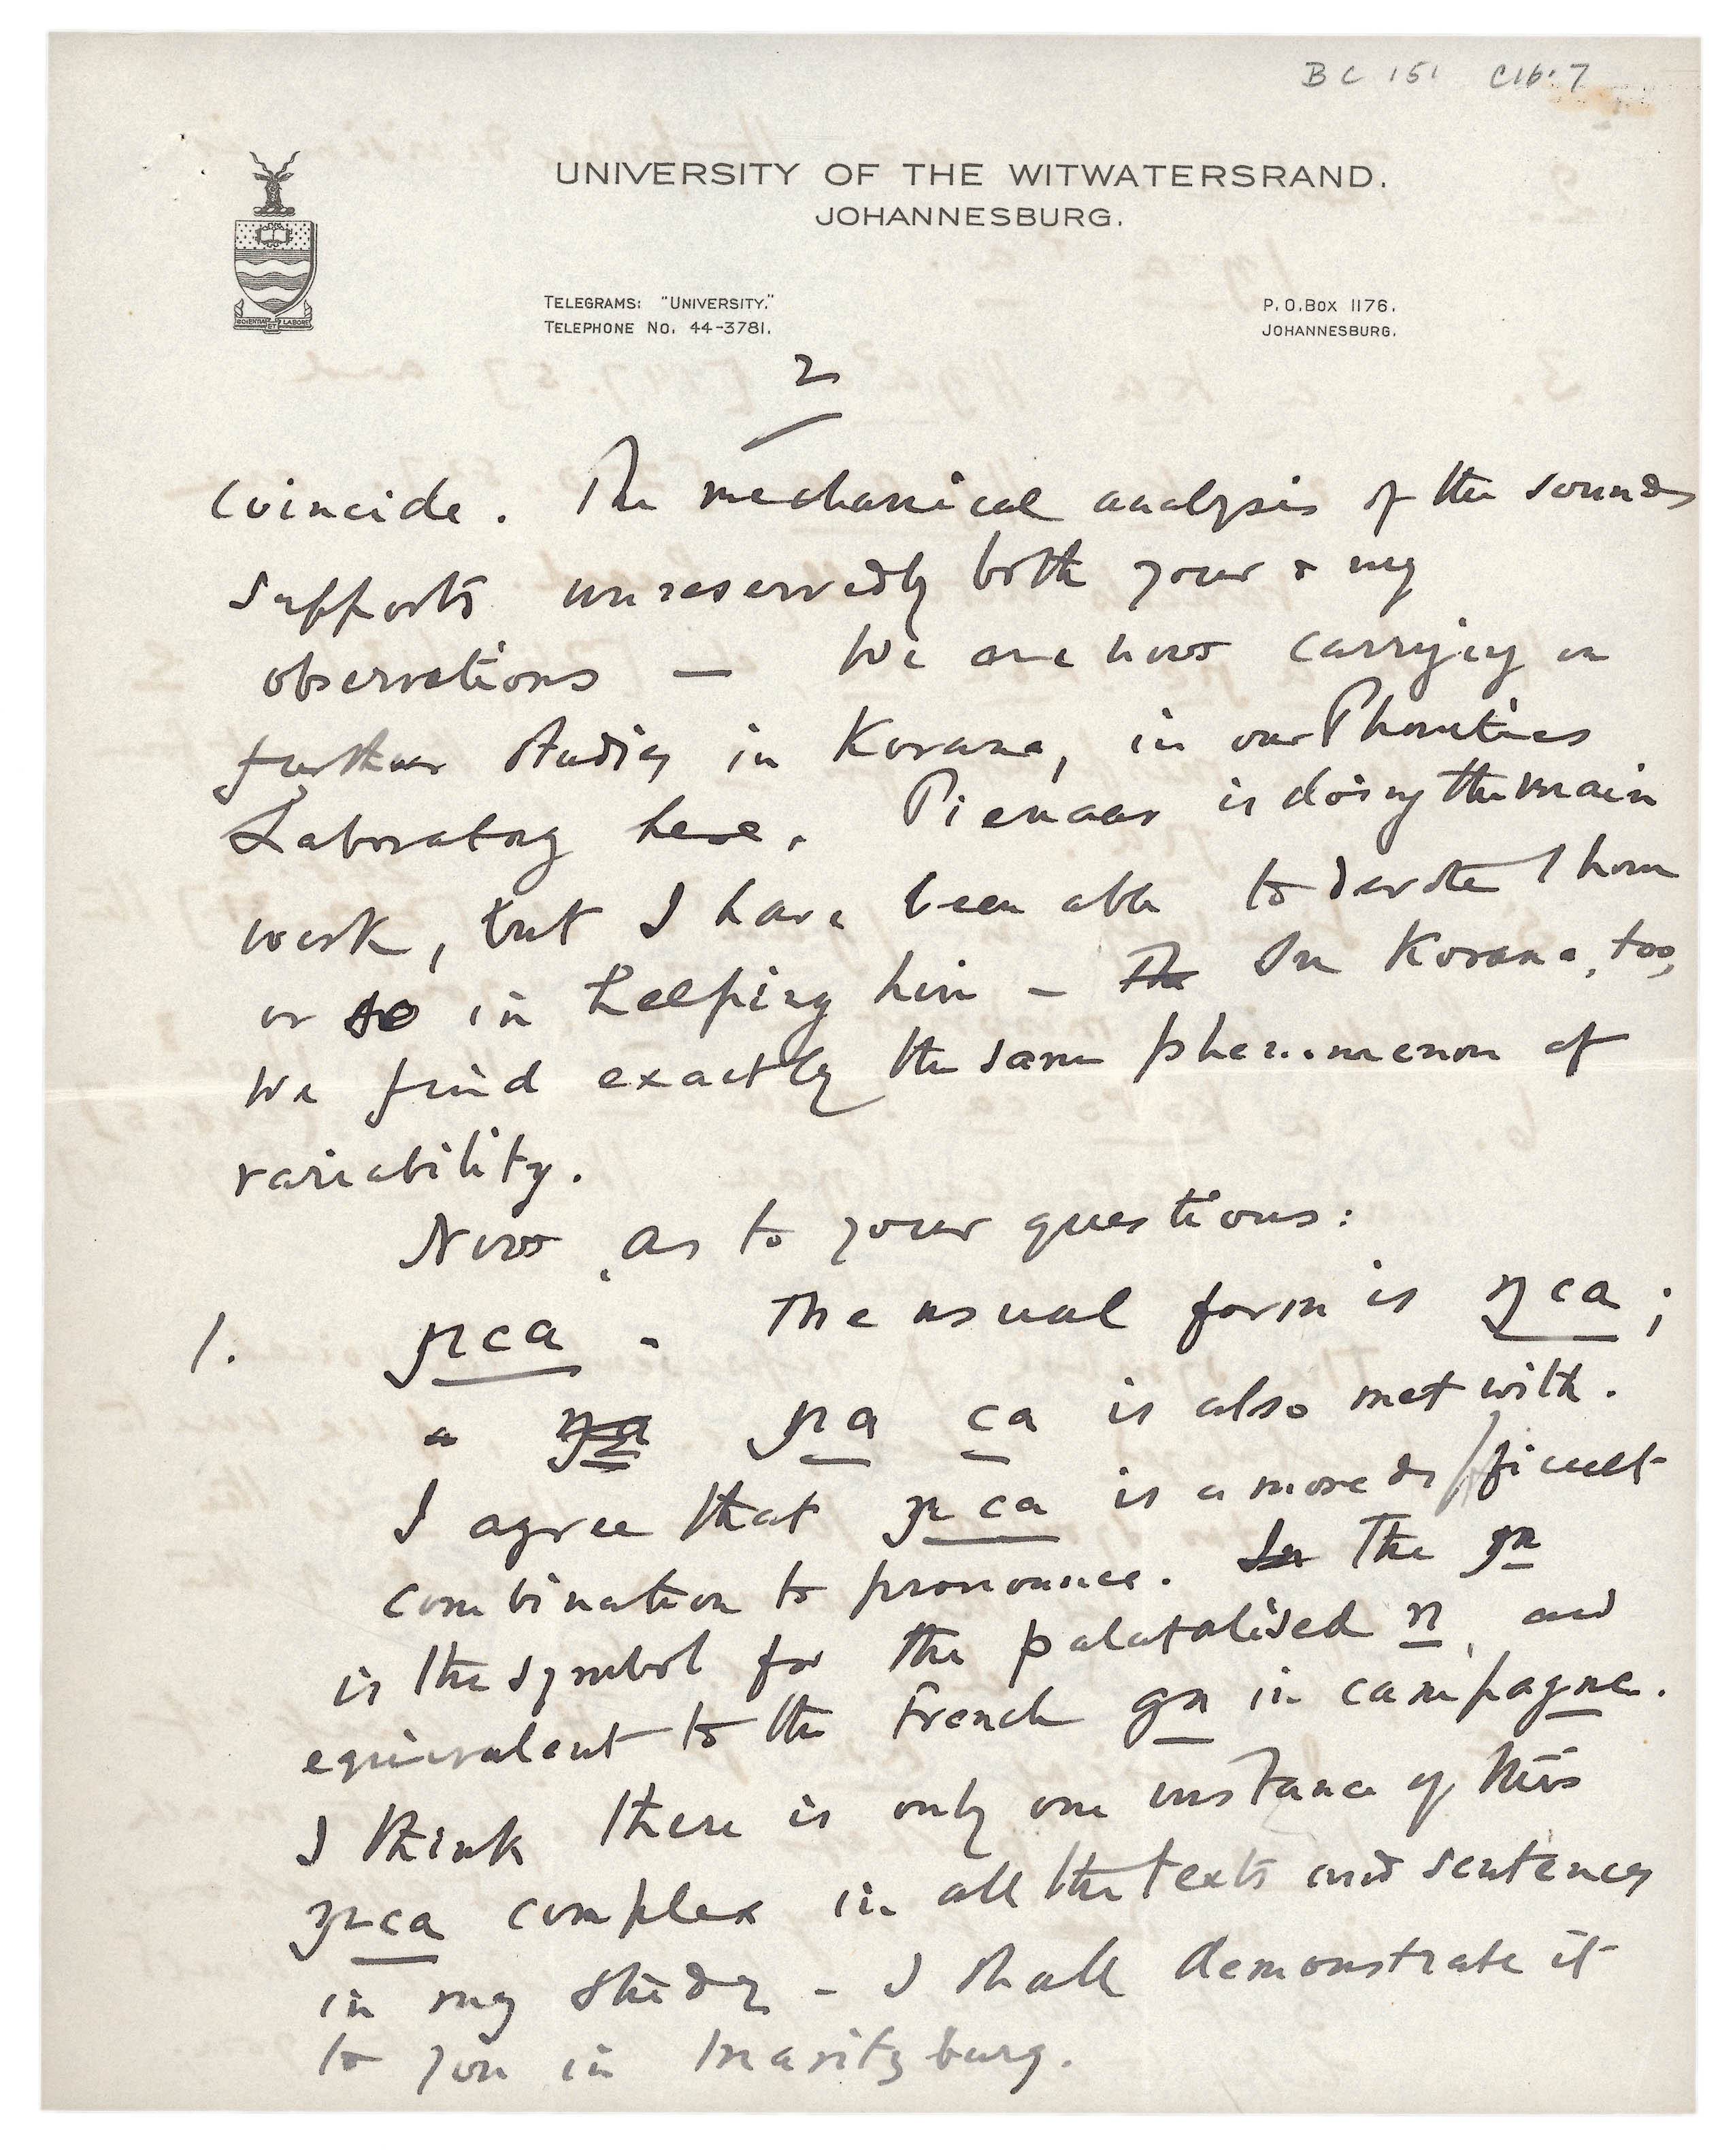 BC 151 C16.7
UNIVERSITY OF THE WITWATERSRAND.
JOHANNESBURG.
TELEGRAMS: "UNIVERSITY."
TELEPHONE No. 44-3781.
P.O. BOX 1176.
JOHANNESBURG.
SCIENTIA ET LABORE
2
coincide. The mechanical analysis of the sounds
supports unreservedly both your & my
observations — We are now carrying on
further studies in Korana, in our Phonetics
Laboratory here. Pienaar is doing the main
work, but I have been able to devote 1 hour
or so in helping him – The In Korana, too,
we find exactly the same phenomenon of
variability.
Now, as to your questions:
1. ɲca - The usual form is ŋca;
a ŋa ɲa ca is also met with.
I agree that ɲca is a more difficult
combination to pronounce. In The ɲ
is the symbol for the palatalised n, and
equivalent to the French gn in campagne.
I think there is only one instance of this
ɲca complex in all the texts and sentences
in my study - I shall demonstrate it
to you in Maritzburg.